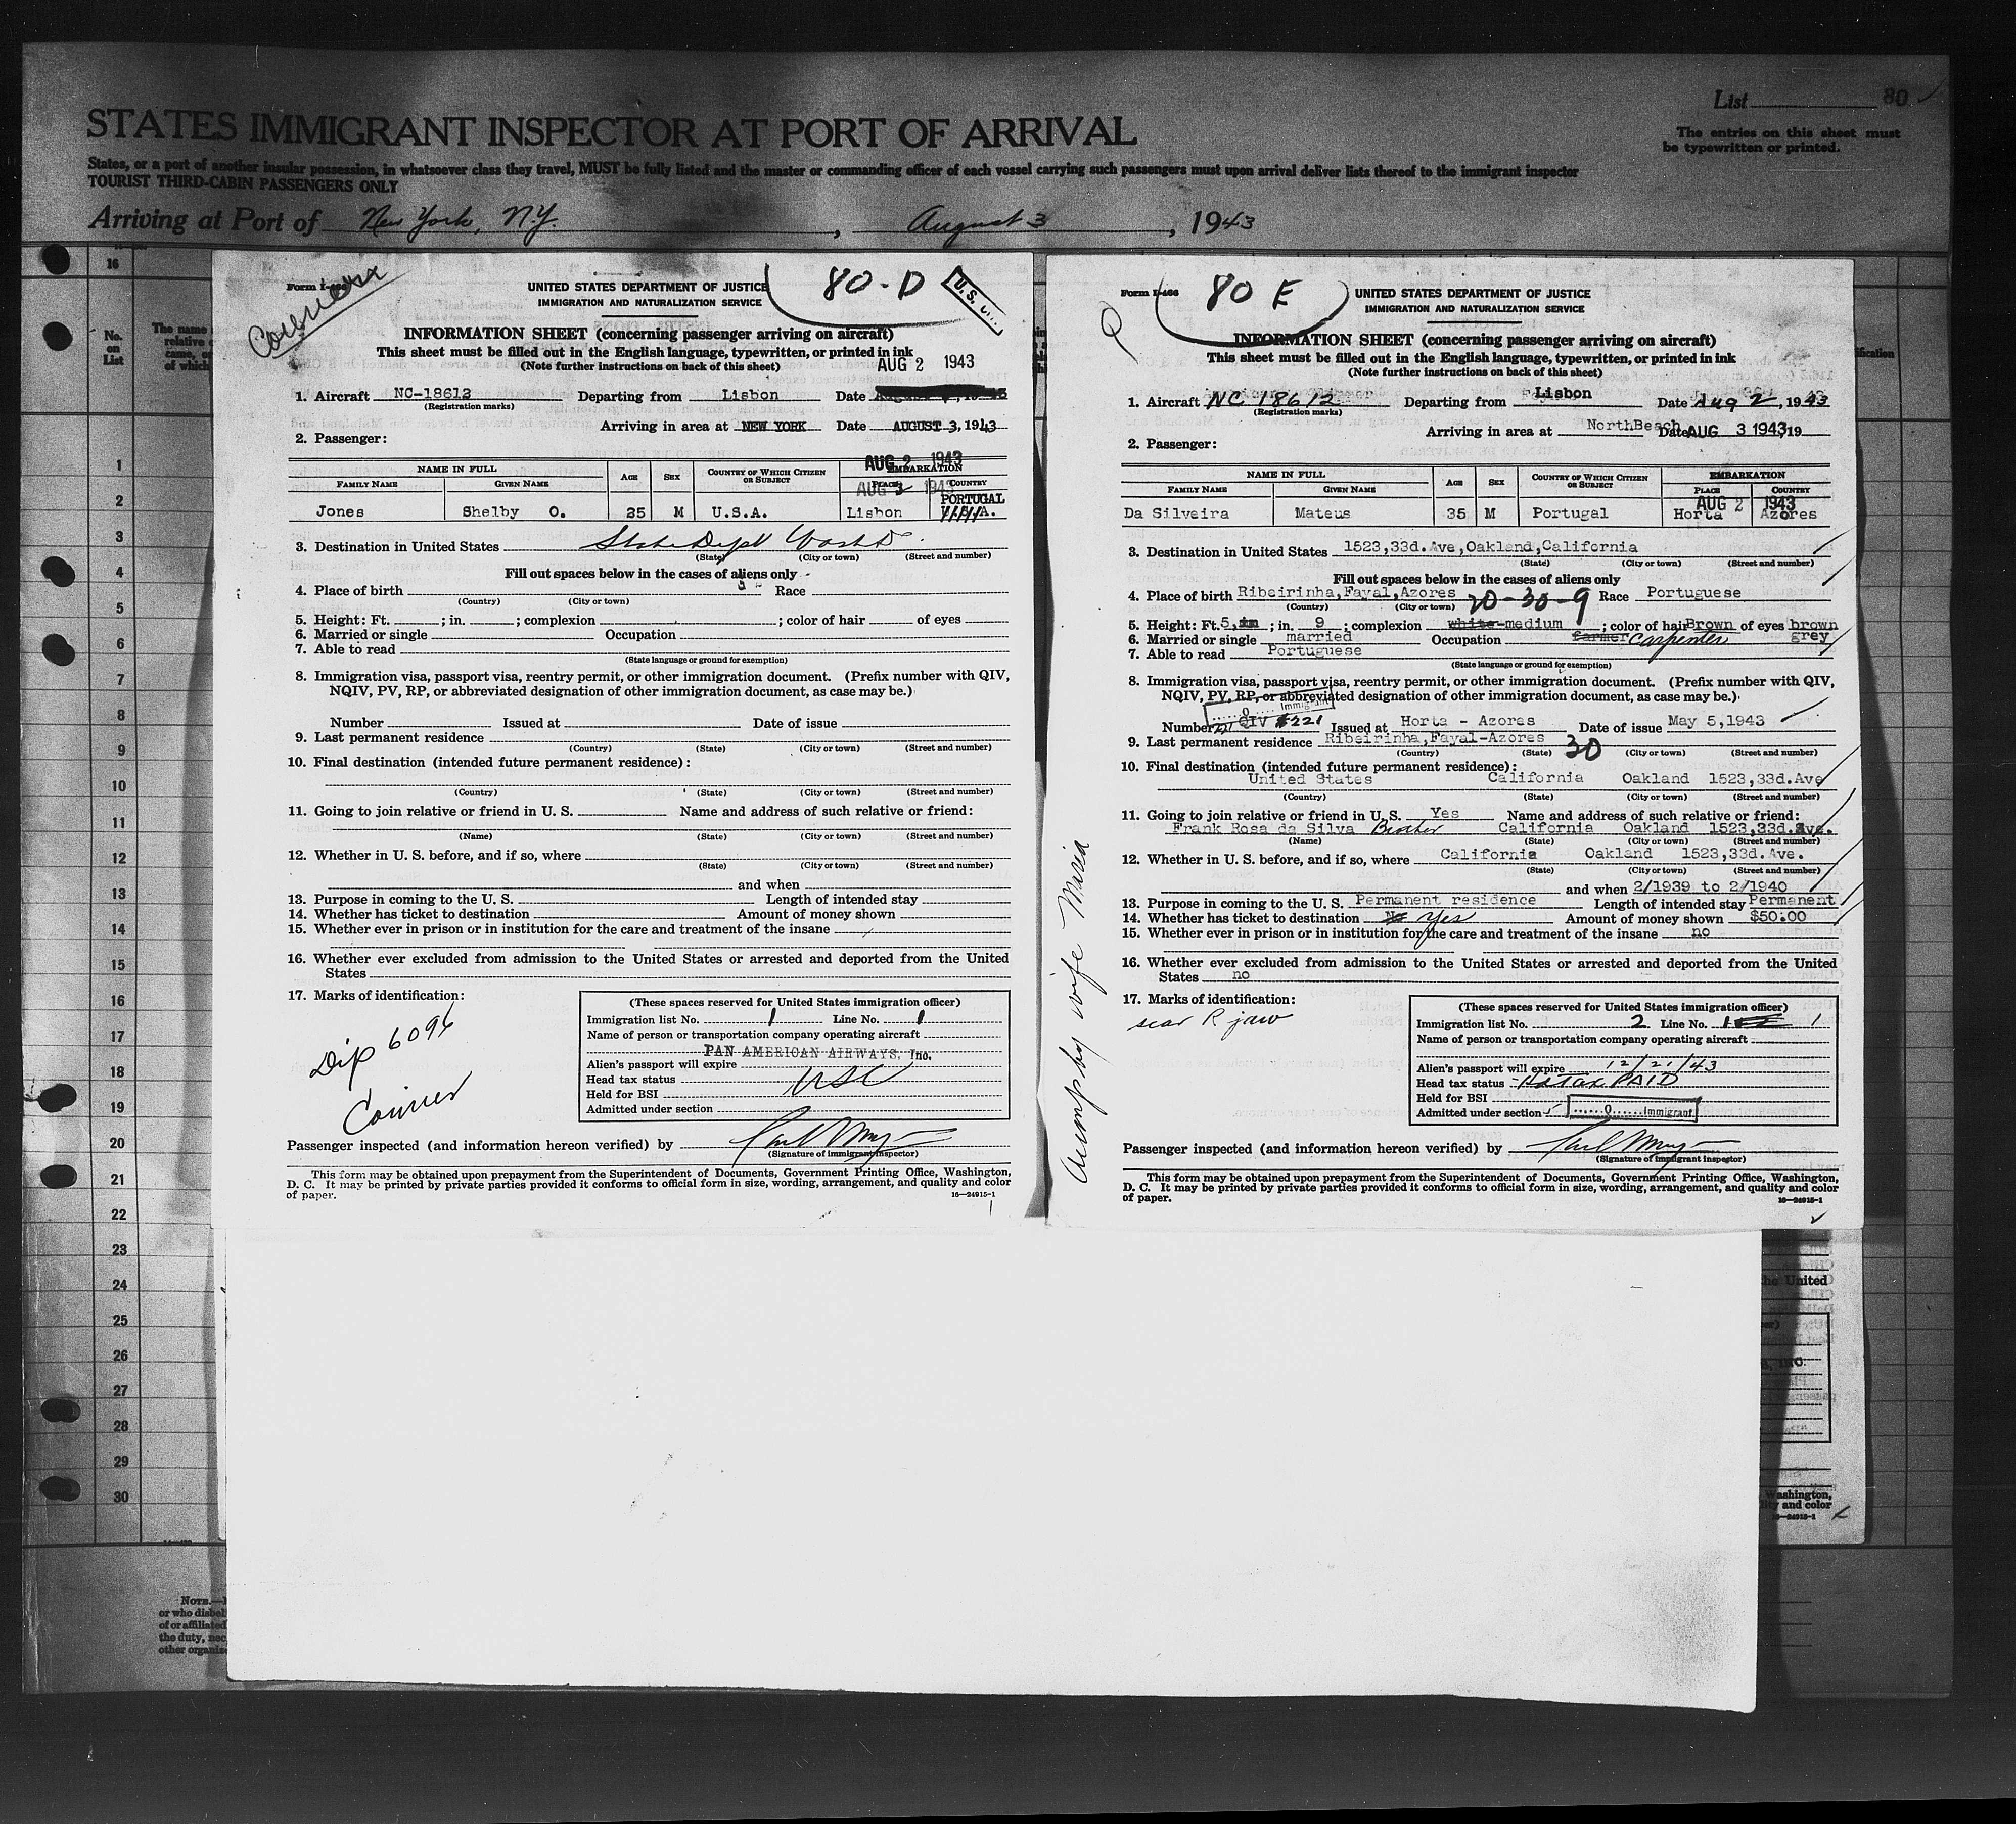 List 80
STATES IMMIGRANT INSPECTOR AT PORT OF ARRIVAL
The entries on this sheet must
be typewritten or printed.
States, or a port of another insular possession, in whatsoever class they travel, MUST be fully listed and the master or commanding officer of each vessel carrying such passengers must upon arrival deliver lists thereof to the immigrant inspector
TOURIST THIRD-CABIN PASSENGERS ONLY
Arriving at Port of New York, N.Y., August 3, 1943
Form I-466
80-D
U.S.
UNITED STATES DEPARTMENT OF JUSTICE
IMMIGRATION AND NATURALIZATION SERVICE
INFORMATION SHEET (concerning passenger arriving on aircraft)
This sheet must be filled out in the English language, typewritten, or printed in ink
(Note further instructions on back of this sheet)
AUG 2 1943
1. Aircraft NC-18612 Departing from Lisbon Date
(Registration marks)
Arriving in area at NEW YORK Date AUGUST 3, 1943
2. Passenger:
AUG 2 1943
AUG 3 1943
NAME IN FULL Age Sex Country of Which Citizen or Subject EMBARKATION
Family Name Given Name Place Country
PORTUGAL
Jones Shelby O. 35 M U.S.A. Lisbon
3. Destination in United States State Dept Wash D
(State) (City or town) (Street and number)
Fill out spaces below in the cases of aliens only
4. Place of birth Race
(Country) (City or town)
5. Height: Ft. ; in. ; complexion ; color of hair of eyes
6. Married or single Occupation
7. Able to read
(State language or ground for exemption)
8. Immigration visa, passport visa, reentry permit, or other immigration document. (Prefix number with QIV,
NQIV, PV, RP, or abbreviated designation of other immigration document, as case may be.)
Number Issued at Date of issue
9. Last permanent residence
(Country) (State) (City or town) (Street and number)
10. Final destination (intended future permanent residence):
(Country) (State) (City or town) (Street and number)
11. Going to join relative or friend in U. S. Name and address of such relative or friend:
(Name) (State) (City or town) (Street and number)
12. Whether in U. S. before, and if so, where
(State) (City or town) (Street and number)
and when
13. Purpose in coming to the U. S. Length of intended stay
14. Whether has ticket to destination Amount of money shown
15. Whether ever in prison or in institution for the care and treatment of the insane
16. Whether ever excluded from admission to the United States or arrested and deported from the United
States
17. Marks of identification:
Dip 6096
Courier
(These spaces reserved for United States immigration officer)
Immigration list No. 1 Line No. 1
Name of person or transportation company operating aircraft
PAN AMERICAN AIRWAYS, Inc.
Alien's passport will expire
Head tax status USC
Held for BSI
Admitted under section
Passenger inspected (and information hereon verified) by
(Signature of immigrant inspector)
This form may be obtained upon prepayment from the Superintendent of Documents, Government Printing Office, Washington,
D. C. It may be printed by private parties provided it conforms to official form in size, wording, arrangement, and quality and color
of paper.
16—24915-1
Form I-466
80 E
UNITED STATES DEPARTMENT OF JUSTICE
IMMIGRATION AND NATURALIZATION SERVICE
INFORMATION SHEET (concerning passenger arriving on aircraft)
This sheet must be filled out in the English language, typewritten, or printed in ink
(Note further instructions on back of this sheet)
1. Aircraft NC 18612 Departing from Lisbon Date Aug 2, 1943
(Registration marks)
Arriving in area at NorthBeach Date AUG 3 1943, 19
2. Passenger:
NAME IN FULL Age Sex Country of Which Citizen or Subject EMBARKATION
Family Name Given Name Place Country
AUG 2 1943
Da Silveira Mateus 35 M Portugal Horta Azores
3. Destination in United States 1523,33d.Ave,Oakland,California
(State) (City or town) (Street and number)
Fill out spaces below in the cases of aliens only
4. Place of birth Ribeirinha,Fayal,Azores 20-30-9 Race Portuguese
(Country) (City or town)
5. Height: Ft. 5, in ; in. 9 ; complexion white-medium ; color of hair Brown of eyes brown
6. Married or single married Occupation farmer Carpenter grey
7. Able to read Portuguese
(State language or ground for exemption)
8. Immigration visa, passport visa, reentry permit, or other immigration document. (Prefix number with QIV,
NQIV, PV, RP, or abbreviated designation of other immigration document, as case may be.)
Q Immigrant
Number QIV #221 Issued at Horta - Azores Date of issue May 5,1943
9. Last permanent residence Ribeirinha,Fayal-Azores 30
(Country) (State) (City or town) (Street and number)
10. Final destination (intended future permanent residence):
United States California Oakland 1523,33d.Ave
(Country) (State) (City or town) (Street and number)
11. Going to join relative or friend in U. S. Yes Name and address of such relative or friend:
Frank Rosa da Silva Brother California Oakland 1523,33d.Ave.
(Name) (State) (City or town) (Street and number)
12. Whether in U. S. before, and if so, where California Oakland 1523,33d.Ave.
(State) (City or town) (Street and number)
and when 2/1939 to 2/1940
13. Purpose in coming to the U. S. Permanent residence Length of intended stay Permanent
14. Whether has ticket to destination No Yes Amount of money shown $50.00
15. Whether ever in prison or in institution for the care and treatment of the insane no
16. Whether ever excluded from admission to the United States or arrested and deported from the United
States no
17. Marks of identification:
scar R jaw
Accomp by wife Maria
(These spaces reserved for United States immigration officer)
Immigration list No. 2 Line No. 1
Name of person or transportation company operating aircraft
Alien's passport will expire 12/21/43
Head tax status Hd Tax PAID
Held for BSI
Admitted under section Q Immigrant
Passenger inspected (and information hereon verified) by
(Signature of immigrant inspector)
This form may be obtained upon prepayment from the Superintendent of Documents, Government Printing Office, Washington,
D. C. It may be printed by private parties provided it conforms to official form in size, wording, arrangement, and quality and color
of paper.
16—24915-1
16
No.
on
List
The name
relative
came, o
of which
1
2
3
4
5
6
7
8
9
10
11
12
13
14
15
16
17
18
19
20
21
22
23
24
25
26
27
28
29
30
he United
S, INC.
Washington,
ity and color
16—24915-1
Note.—
or who disbel
of or affiliated
the duty, nec
other organiz